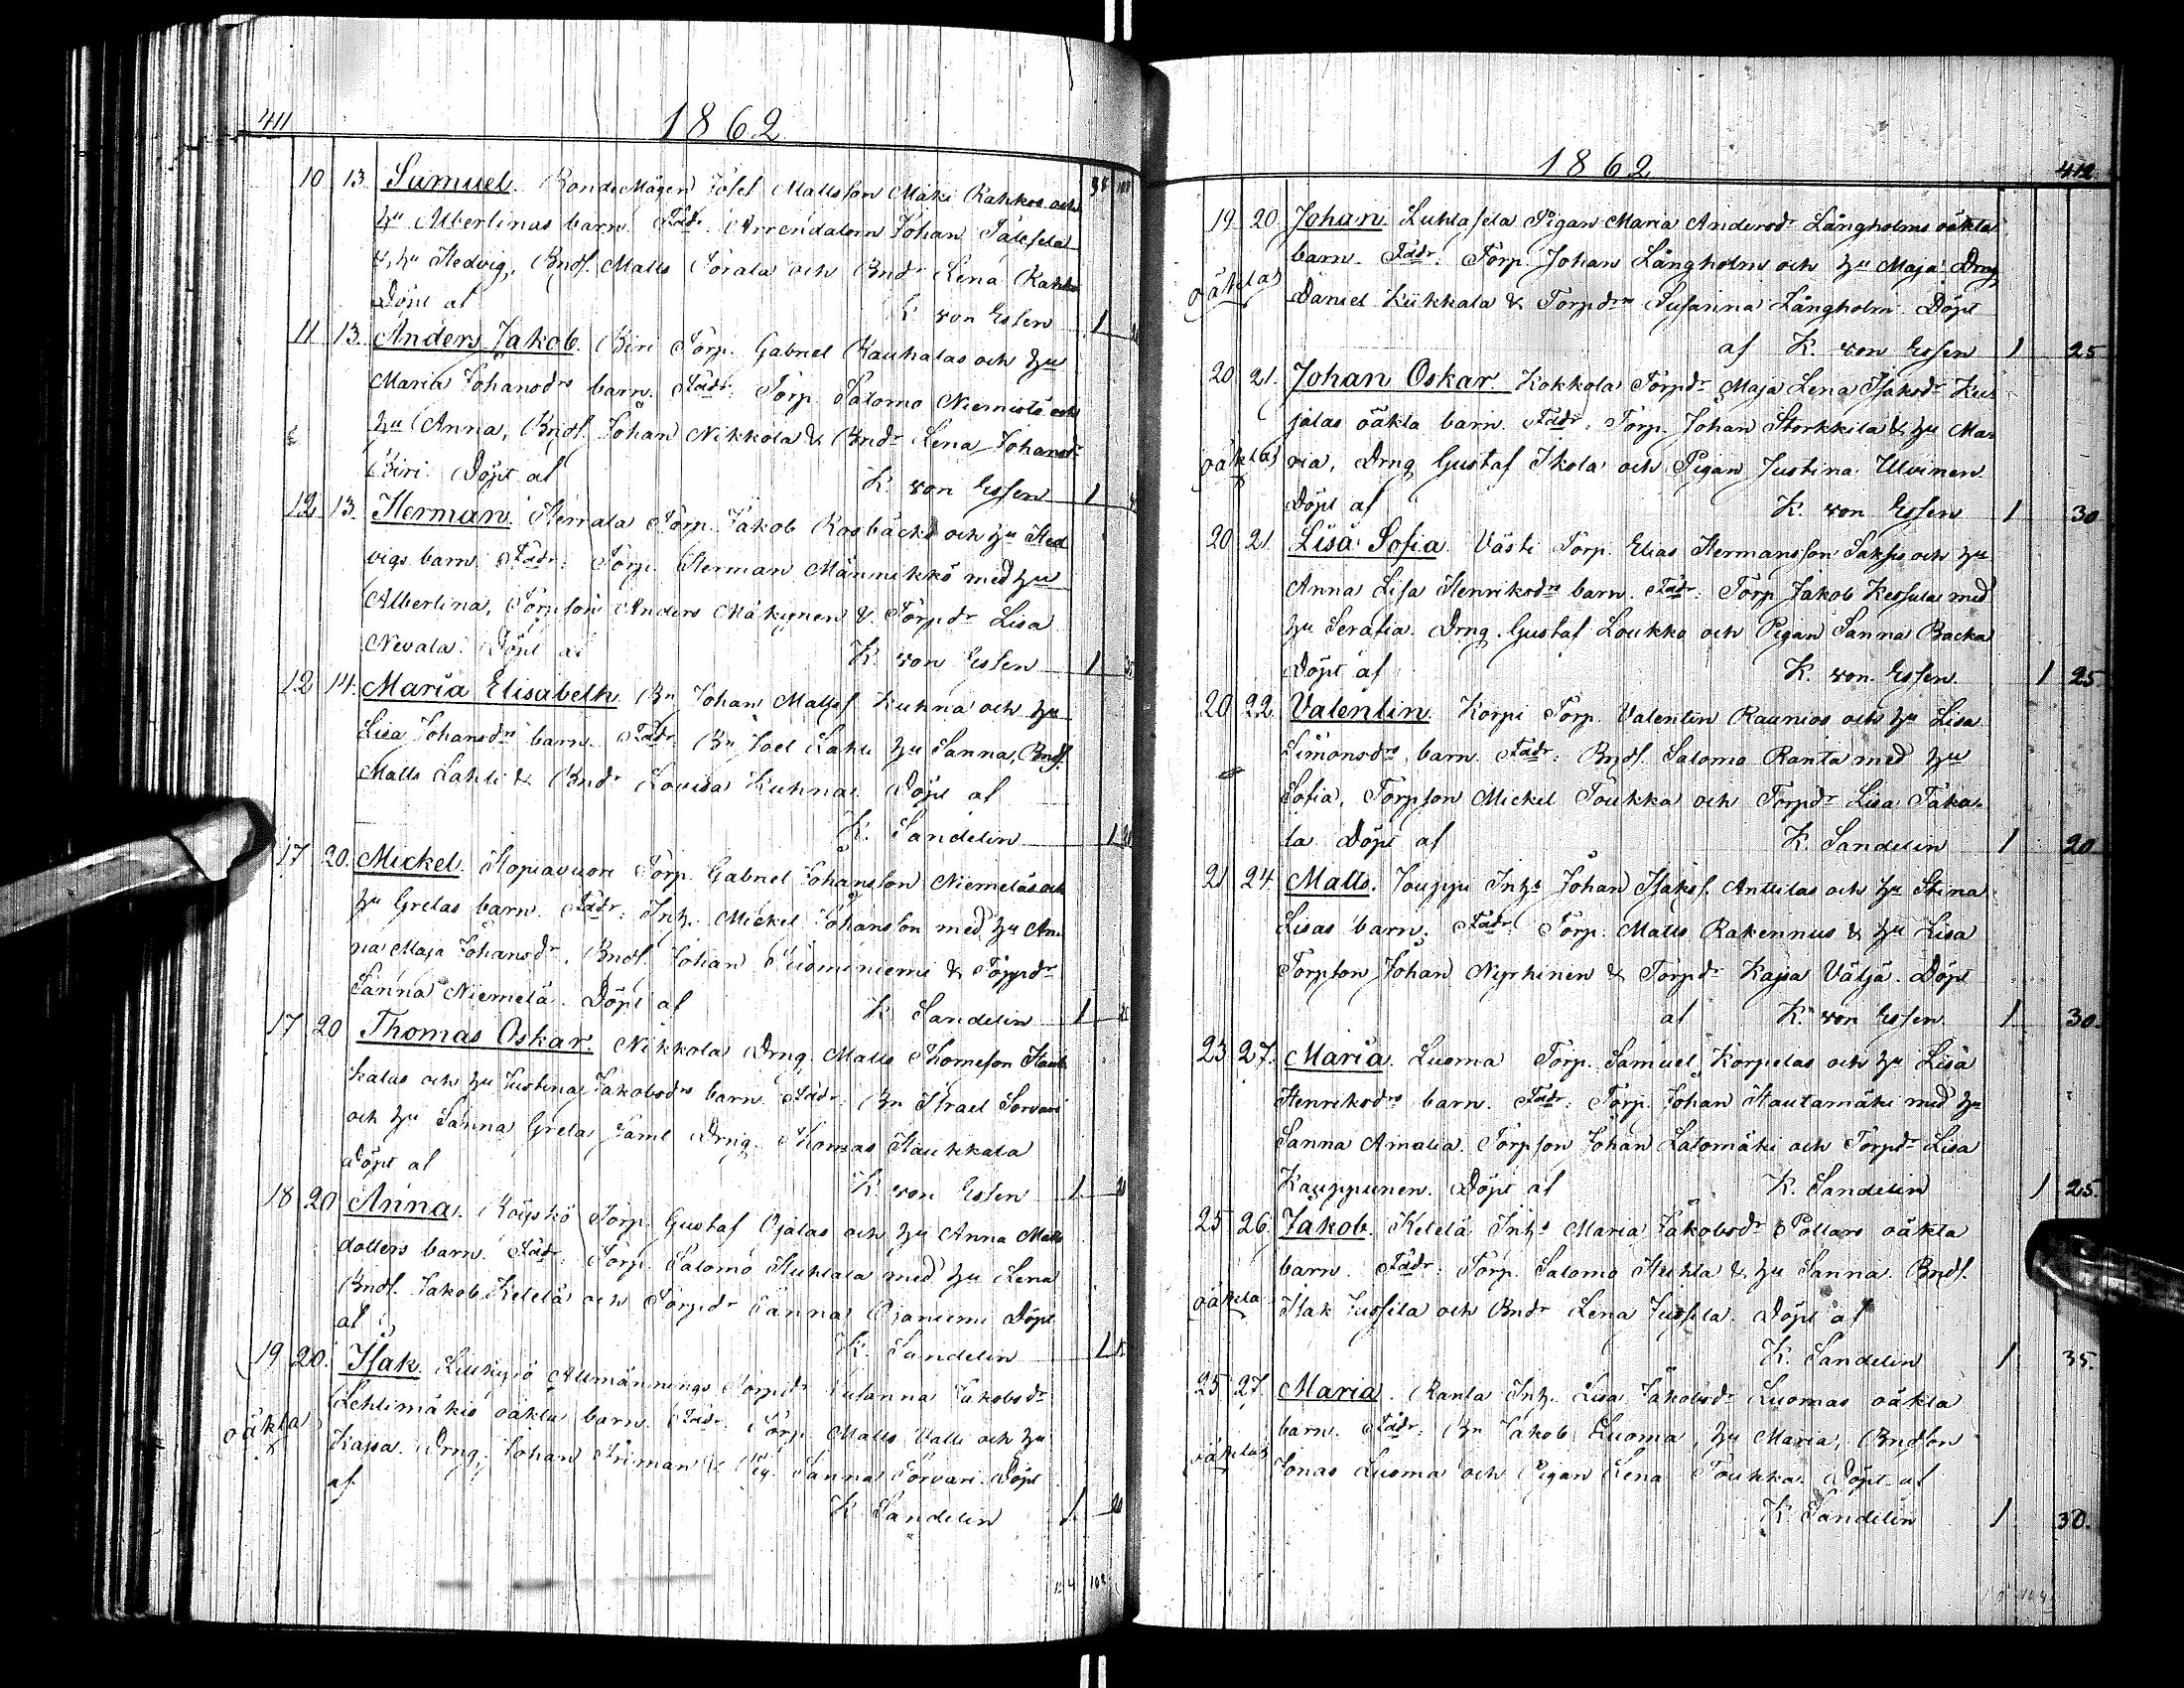 411
1862
10 13. Samuel. BondeMågen Josef Mattsson Mäki Rahkos och
hu Albertinas barn. Fadr. Arrendatorn Johan
& hu Hedvig, Bnds. Matts och Bndr Lena Rahko
Döpt af K. von Essen 1
11 13. Anders Jakob. Biri Torp. Gabriel Rauhalas och hu
Maria Johansdrs barn. Fadr. Torp. Salomo Niemistö och
hu Anna, Bnds. Johan Nikkola & Bndr Lena Johansdr
Biri. Döpt af
K. von Essen 1
12 13. Herman. Herrala Torp. Jakob Rosbäcks och hu Hed
vigs barn. Fadr: Torp. Herman Männikkö med hu
Albertina, Torpson Anders Mäkynen & Torpdr Lisa
Nevala. Döpt af K. von Essen 1
12 14. Maria Elisabeth. Bn Johan Mattss Kuhna och hu
Lisa Johansdrs barn. Fadr. Bn Joel Lahti hu Sanna, Bnds.
Matts Lahti & Bndr Lovisa Kuhna. Döpt af
K. Sandelin 1
17 20. Mickel. Hopiavuori Torp. Gabriel Johansson Niemeläs och
hu Gretas barn. Fadr: Inh. Mickel Johansson med hu An
na Maja Johansdr, Bnds. Johan Suominiemi & Torpdr
Sanna Niemelä. Döpt af K. Sandelin 1
17 20 Thomas Oskar. Nikkola Drng. Matts Thomeson Hauk
kalas och hu Justina Jakobsdrs barn. Fadr: Bn Israel Sorvari
och hu Sanna Greta samt Drng. Thomas Haukkala
Döpt af
K. von Essen 1
18 20 Anna. Röyskö Torp. Gustaf Ojalas och hu Anna Matts
dotters barn. Fadr: Torp. Salomo Huhtala med hu Lena
Bnds. Jakob Ketelä och Torpdr Sanna Ojaniemi Döpt
af
K. Sandelin 1
19 20. Isak. Allmännings Torpdr Susanna Jakobsdr
Lehtimäkis oäkta barn. Fadr. Torp. Matts Valli och hu
oäkta
Kajsa. Drng. Johan & Pig. Sanna Sorvari. Döpt
af
K Sandelin 1
1862
412
19. 20. Johan. Luhtasela Pigan Maria Andersdr Långholms oäkta
barn. Fadr. Torp. Johan Långholm och hu Maja. Drng
oäktas
Daniel Kiikkala & Torpdrn Susanna Långholm. Döpt
af K. von Essen 1 25
20 21. Johan Oskar. Kokkola Torpdr Maja Lena Isaksdr Kus
jalas oäkta barn. Fadr. Torp. Johan Storkkila & hu Ma-
oäktas
ria, Drng Gustaf Ikola och Pigan Justina Ulvinen.
Döpt af K. von Essen 1 30
20 21 Lisa Sofia. Västi Torp. Elias Hermansson Saksis och hu
Anna Lisa Henriksdrs barn. Fadr: Torp Jakob Keisala med
hu Serafia. Drng. Gustaf Loukko och Pigan Sanna Backa
Döpt af K. von Essen. 1 25.
20 22. Valentin. Korpi Torp. Valentin Raunios och hu Lisa
Simonsdrs barn. Fadr: Bnds. Salomo Ranta med hu
Sofia, Torpson Mickel Toukka och Torpdr Lisa Taka-
la Döpt af K. Sandelin 1 20
21 24. Matts. Jouppi Inhs Johan Isakss. Anttilas och hu Stina
Lisas barn. Fadr: Torp. Matts Rakennus & hu Lisa
Torpson Johan Nyrhinen & Torpdr Kajsa Väljä. Döpt
af K. von Essen 1 30.
23 27. Maria. Luoma Torp. Samuel Korpelas och hu Lisa
Henriksdrs barn. Fadr: Torp. Johan Hautamäki med hu
Sanna Amalia. Torpson Johan Latomäki och Torpdr Lisa
Kauppinen. Döpt af K. Sandelin 1 25.
25 26. Jakob. Ketelä Inhs Maria Jakobsdr Pollars oäkta
barn. Fadr: Torp. Salomo Huhta & hu Sanna. Bnds.
oäkta
Isak Jussila och Bndr Lena Jussila. Döpt af
K. Sandelin 1 35.
25 27. Maria. Ranta Inh. Lisa Jakobsdr Luomas oäkta
barn. Fadr. Bn Jakob Luoma, hu Maria, Bndson
oäktas
Jonas Luoma och Pigan Lena Toukka. Döpt af
K Sandelin 1 30.